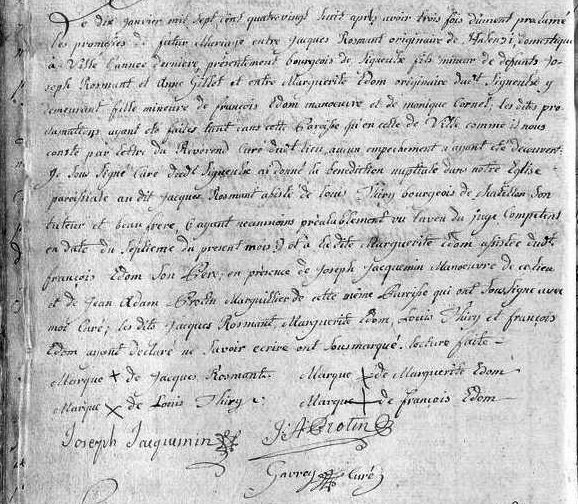 Le dix janvier mil sept cens quatrevingt huit après avoir trois fois dûment proclamé
les promesses de futur Mariage entre Jacques Rosmant originaire de Halenzi, domestique
à Ville l'année dernière présentement bourgeois de Signeulx fils mineur de défunts Jo-
seph Rosmant et Anne Gillot et entre Marguerite Edom originaire dudt Signeulx, y
demeurant fille mineure de françois Edom manoeuvre et de monique Cornet, les dites pro-
clamations ayant etés faites tant dans cette Paroisse qu'en celle de Ville comme il nous
conste par lettre du Reverend Curé dudt lieu, aucun empechement n'ayant eté decouvert
Je Sousigné Curé dudt Signeulx ai donné la benediction nuptiale dans notre Eglise
paroissiale au dit Jacques Rosmant assisté de louis Thiry bourgeois de Son
tuteur et beau frere, ayant neanmoins préalablement vu l'aveu du juge Competent
en date du Septieme du present mois et à la dite Marguerite Edom assistée dudt
françois Edom Son Père, en présence de Joseph Jacquemin Manoeuvre de ce lieu
et de Jean Adam Protin Marguillier de cette même Paroisse qui ont Soussigné avec
moi Curé; les dits Jacques Rosmant, Marguerite Edom, Louis Thiry et françois
Edom ayant declaré ne Savoir ecrire ont Sousmarqué. lecture faite
Marque + de Jacques Rosmant. Marque + de Marguerite Edom
Marque × de Louis Thiry. Marque + de françois Edom
Joseph Jacquemin J: A Protin
Curé